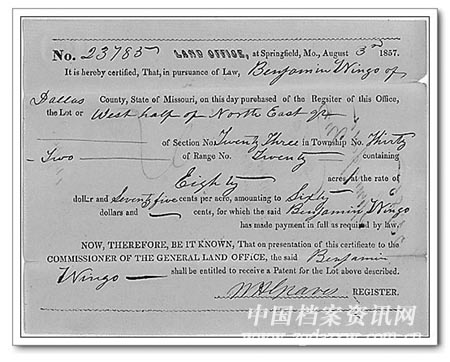 No. 23785 LAND OFFICE, at Springfield, Mo., August 3d 1857.
It is hereby certified, That, in pursuance of Law, Benjamin Wingo of
Dallas County, State of Missouri, on this day purchased of the Register of this Office,
the Lot or West half of North East qr
of Section No. Twenty Three in Township No. Thirty
Two of Range No. Twenty containing
Eighty acres, at the rate of
dollar and Seventy five cents per acre, amounting to Sixty
dollars and — cents, for which the said Benjamin Wingo
has made payment in full as required by law.
NOW, THEREFORE, BE IT KNOWN, That on presentation of this certificate to the
COMMISSIONER OF THE GENERAL LAND OFFICE, the said Benjamin
Wingo — shall be entitled to receive a Patent for the Lot above described.
W H Graves REGISTER.
中国档案资讯网
www.zgdazxw.com.cn